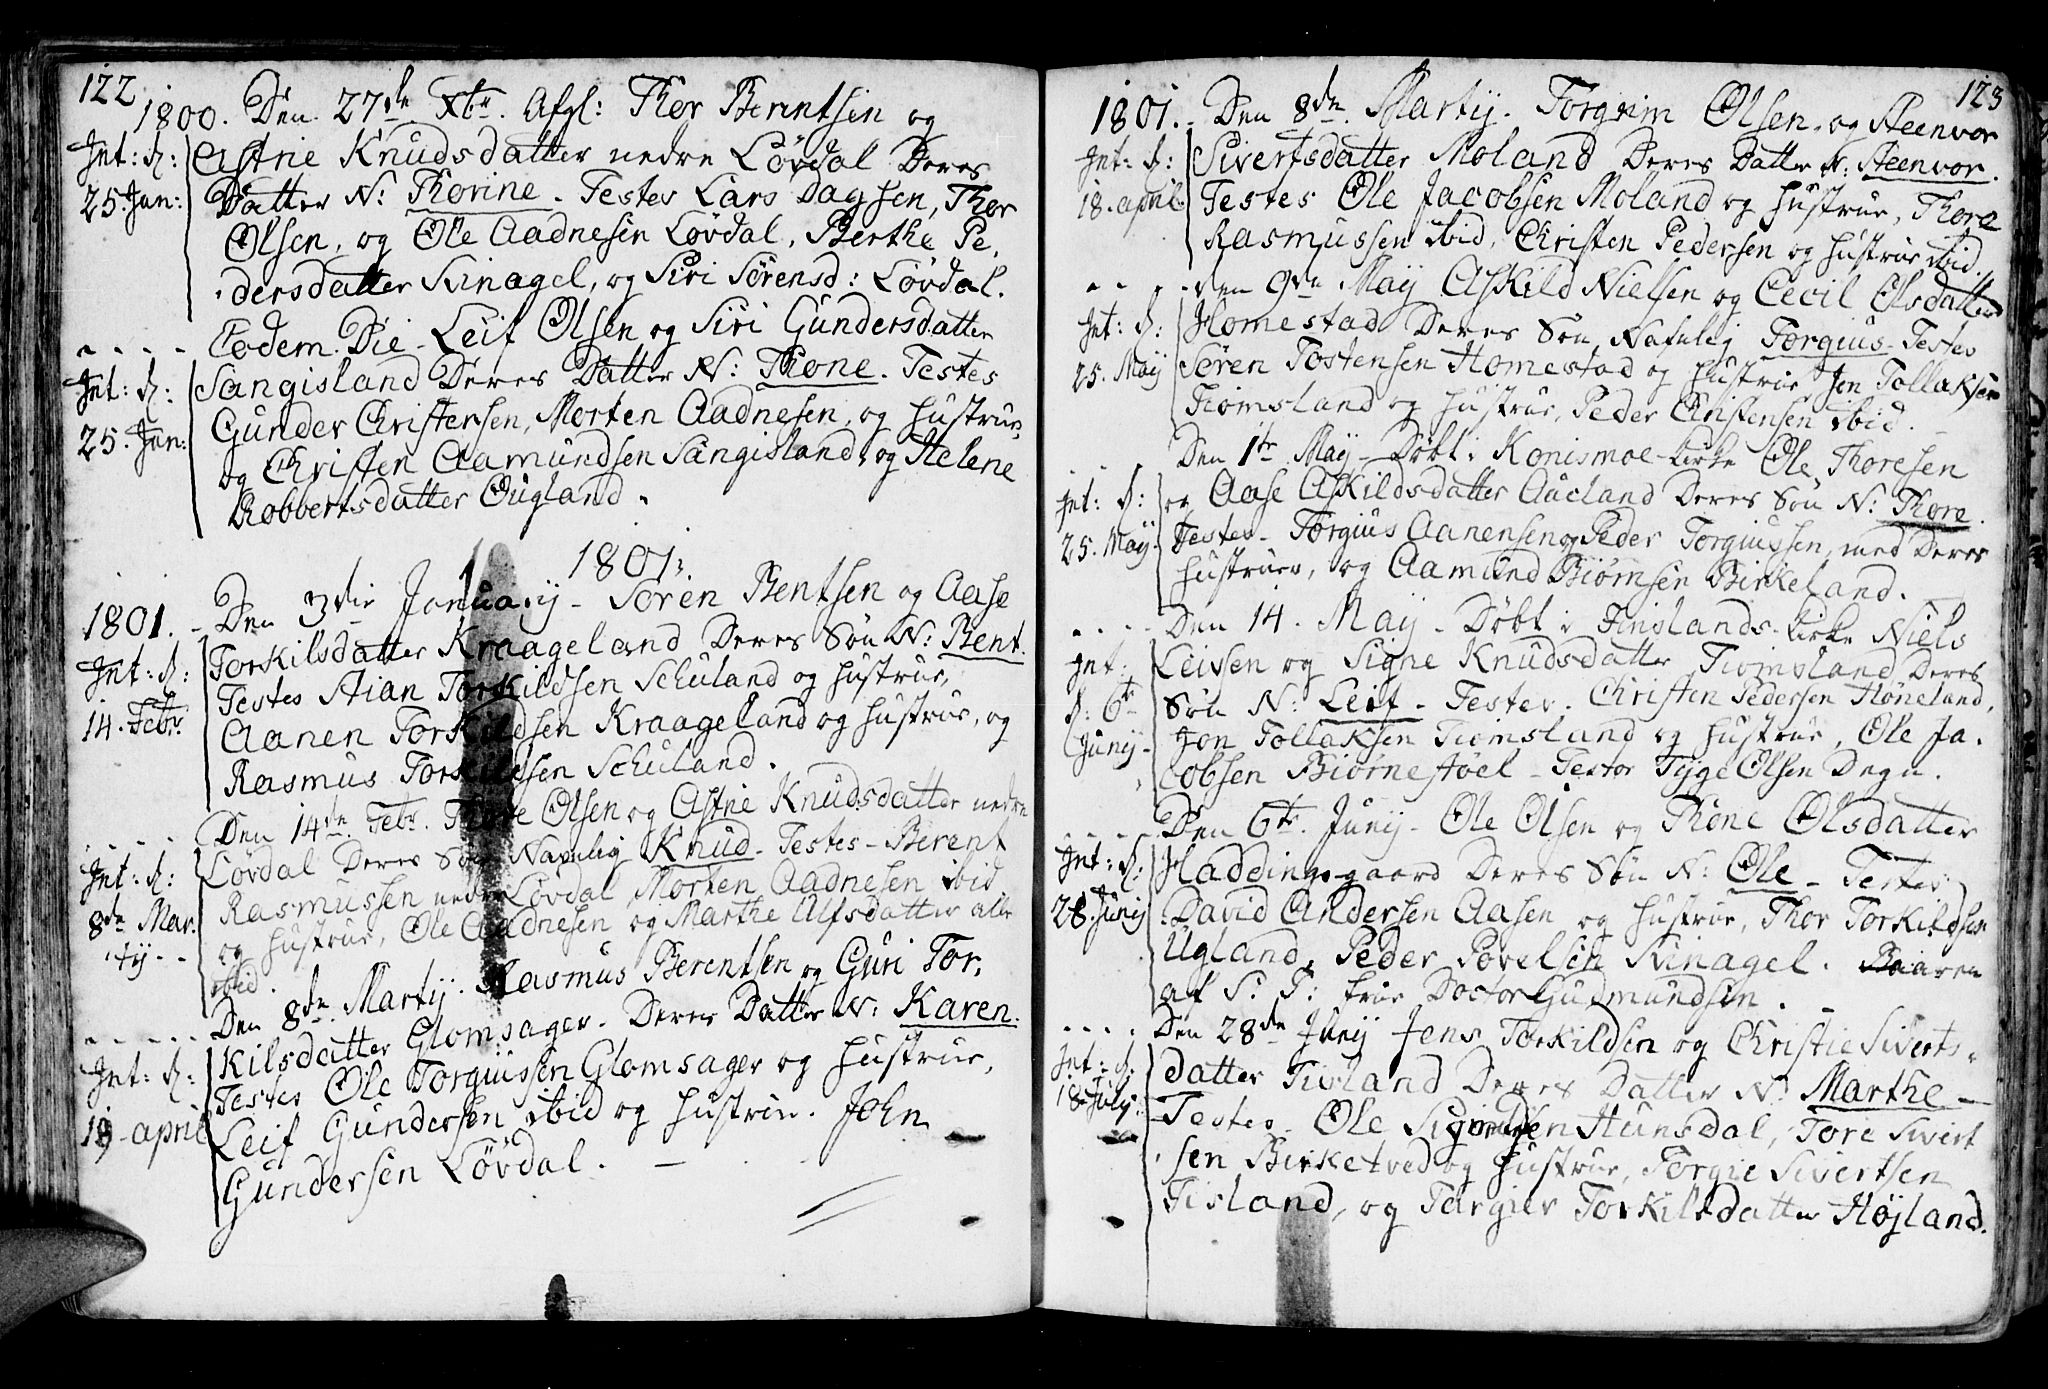 122
1800. Den 27de Xbr. Afgl: Thor Berntsen og
Int: d: Astrie Knudsdatter nedre Løvdal Deres
25. Jan: Datter N: Thorine - Testes Lars Dagsen, Thor
Olsen, og Ole Aadnesen Løvdal, Berthe Pe,
dersdatter Kinagel, og Siri Sørensd: Løvdal.
Eodem Die - Leif Olsen og Siri Gundersdatter
Int: d: Sangisland Deres Datter N: Thone. Testes
25. Jan: Gunder Christensen, Morten Aadnesen, og Hustrue,
og Christen Aamundsen Sangisland, og Helene
Robbertsdatter Øugland.
1801:
1801. - Den 3die January - Søren Bentsen og Aase
Int: d: Torkilsdatter Kraageland Deres Søn N: Bent.
14. Febr. Testes Stian Torkildsen Schuland og Hustrue,
Aanen Torkildsen Kraageland og Hustrue, og
Rasmus Torkildsen Schuland.
Den 14de Febr. Thore Olsen og Astrie Knudsdatter nedre
Int: d: Løvdal Deres Søn Navnlig Knud - Testes - Berent
8de Mar, Rasmussen nedre Løvdal, Morten Aadnesen ibid
tij - - og Hustrue, Ole Aadnesen og Marthe Alfsdatter alle
ibid.
Den 8de Martij. Rasmus Berentsen og Guri Tor,
Int: d: Kilsdatter Glomsager - Deres Datter N: Karen.
19 - april Testes Ole Torgiussen Glomsager og Hustrue,
Leif Gundersen ibid og Hustrue. John
Gundersen Løvdal. -
123
1801. - Den 8de Martij - Torgrim Olsen og Steenvor
Int: d: Sivertsdatter Moland Deres Datter N: Steenvor.
18. april: Testes Ole Jacobsen Moland og Hustrue, Thore
Rasmussen ibid, Christen Pedersen og Hustrue ibid.
- - - - Den 9de Maij Askild Nielsen og Cecil Olsdatter
Int: d: Homestad Deres Søn Nafnlig Torgius - Testes
25. Maij Søren Tostensen Homestad og Hustrue, Jon Tollaksen
Tiomsland og Hustrue, Peder Christensen ibid.
Den 1te Maij - Døbt i Konismoe Kirke Ole Thoresen
Int: d: og Aase Askildsdatter Aucland Deres Søn N: Thore.
25. Maij - Testes - Torgius Aanensen og Peder Torgiussen, med Deres
Hustruer, og Aamund Biørnsen Birkeland.
- - - - Den 14. Maij - Døbt i Finslands - Kirke Niels
Int: Leifsen og Signe Knudsdatter Tiomsland Deres
d: 6te Søn N: Leif - Testes. Christen Pedersen Høneland,
Junij - Jon Tollaksen Tiomsland og Hustrue, Ole Ja,
cobsen Biørnestøel - Testor Tyge Olsen Degn.
- - - - Den 6te Junij - Ole Olsen og Thone Olsdatter
Int: d: Haddingsgaard Deres Søn N: Ole - Testes
28. Junij David Andersen Aasen og Hustrue, Thor Torkildsen
Ugland, Peder Povelsen Kinagel. Baaren
af S: T: Frue Doctor Gudmundsen.
- - - - Den 28de Junij Jens Torkildsen og Christie Siverts,
Int: d: datter Tisland Deres Datter N: Marthe -
18 July: Testes - Ole Sigmundsen Hunsdal, Tore Sivert
sen Birketved og Hustrue, Torgie Sivertsen
Tisland, og Targier Torkilsdatter Højland.